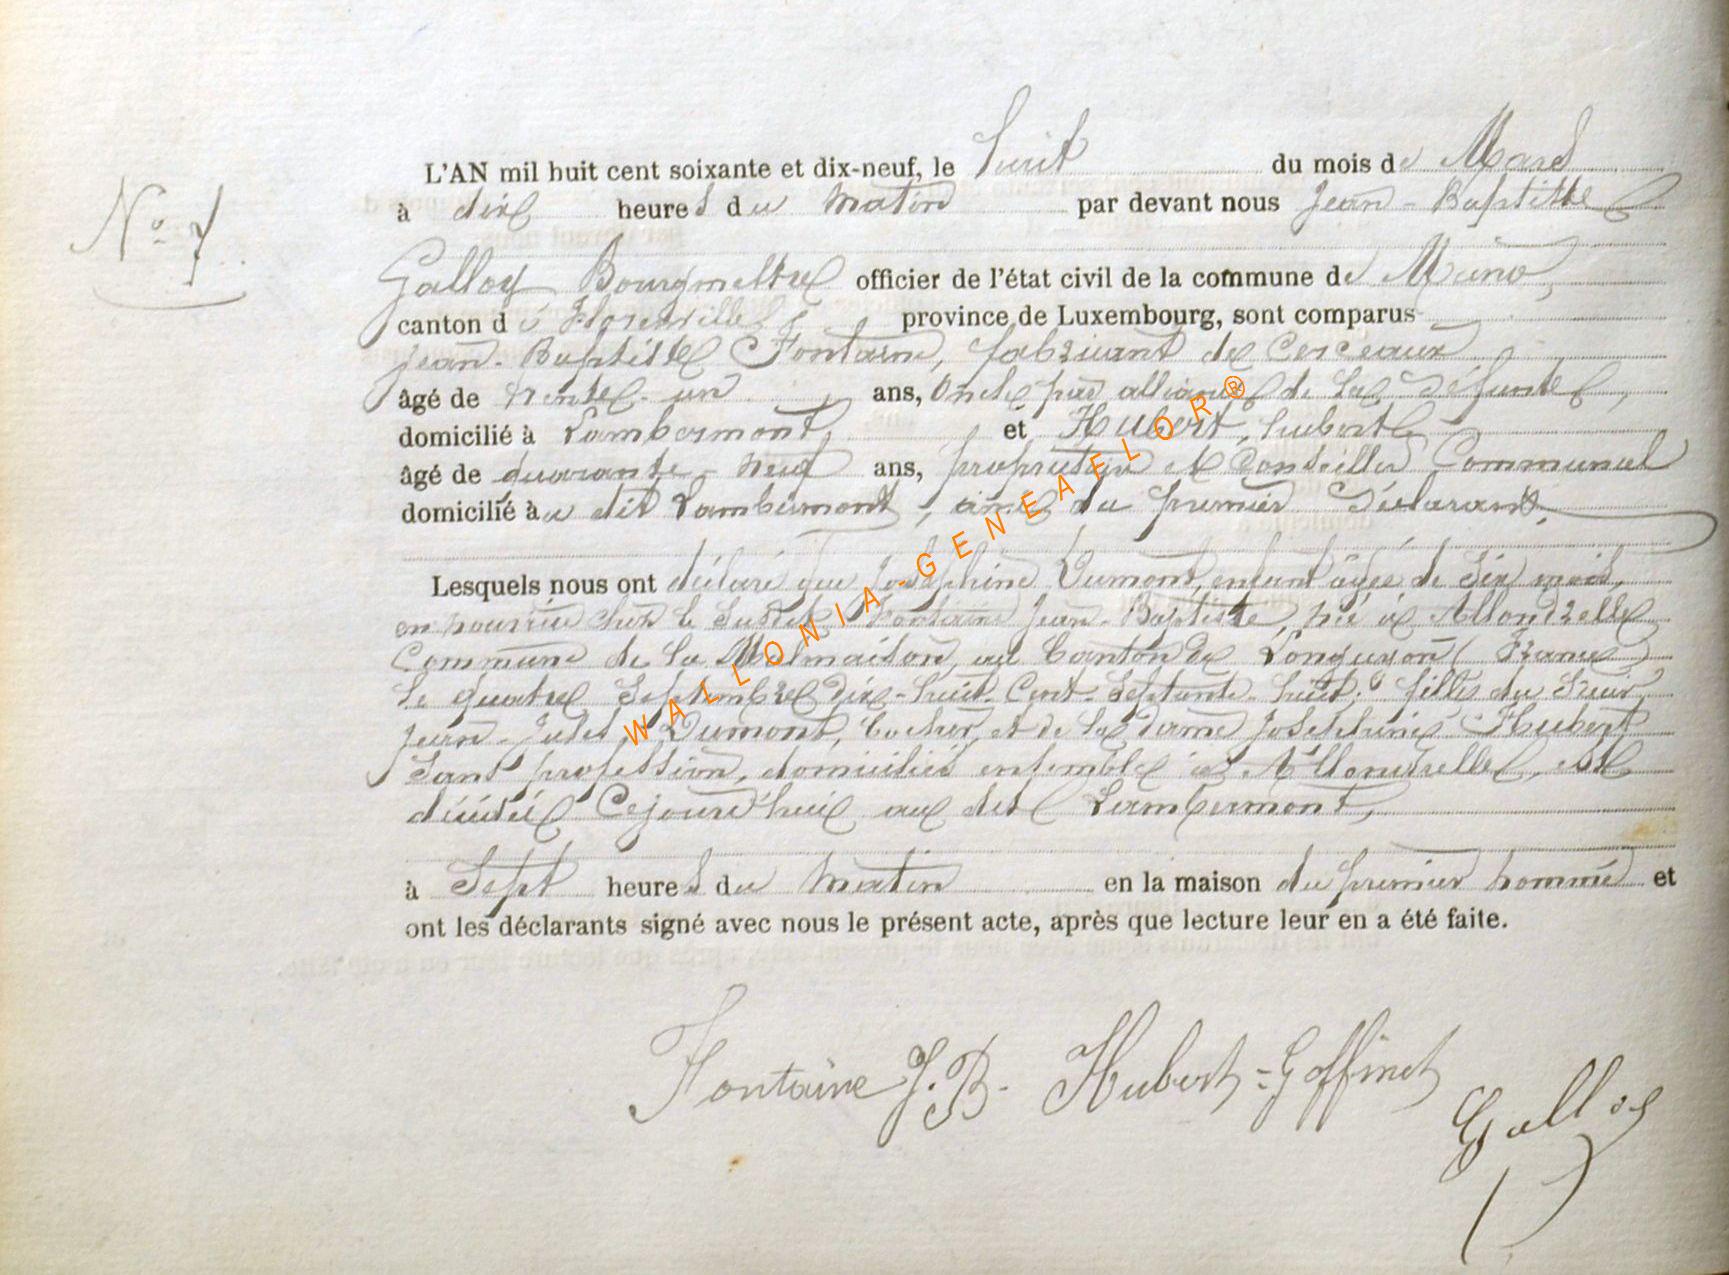 N° 7
L'AN mil huit cent soixante et dix-neuf, le huit du mois de Mars
à dix heures du matin par devant nous Jean-Baptiste
Galloy Bourgmestre officier de l'état civil de la commune de Muno,
canton de Florenville province de Luxembourg, sont comparus
Jean-Baptiste Fontaine, fabricant de Cerceaux
âgé de trente-un ans, Oncle par alliance de la défunte,
domicilié à Lambermont, et Hubert, hubert
âgé de quarante-neuf ans, propriétaire et Conseiller Communal
domicilié au dit Lambermont, ami du premier déclarant,
Lesquels nous ont déclaré que Joséphine Dumont, enfant âgée de six mois,
en nourrice chez le susdit Fontaine Jean-Baptiste, née à Allondrelle
Commune de la Malmaison, au Canton de Longuyon (France)
le quatre Septembre dix-huit-Cent-Septante-huit, fille du Sieur
Jean-Jules Dumont, Cocher, et de la dame Joséphine Hubert
Sans profession, domiciliés ensemble à Allondrelle, est
décédée Cejourd'hui au dit Lambermont,
à Sept heures du matin en la maison du premier nommé et
ont les déclarants signé avec nous le présent acte, après que lecture leur en a été faite.
Fontaine J.B. Hubert-Goffinet
Galloy
WALLONIA-GENEAELOR®